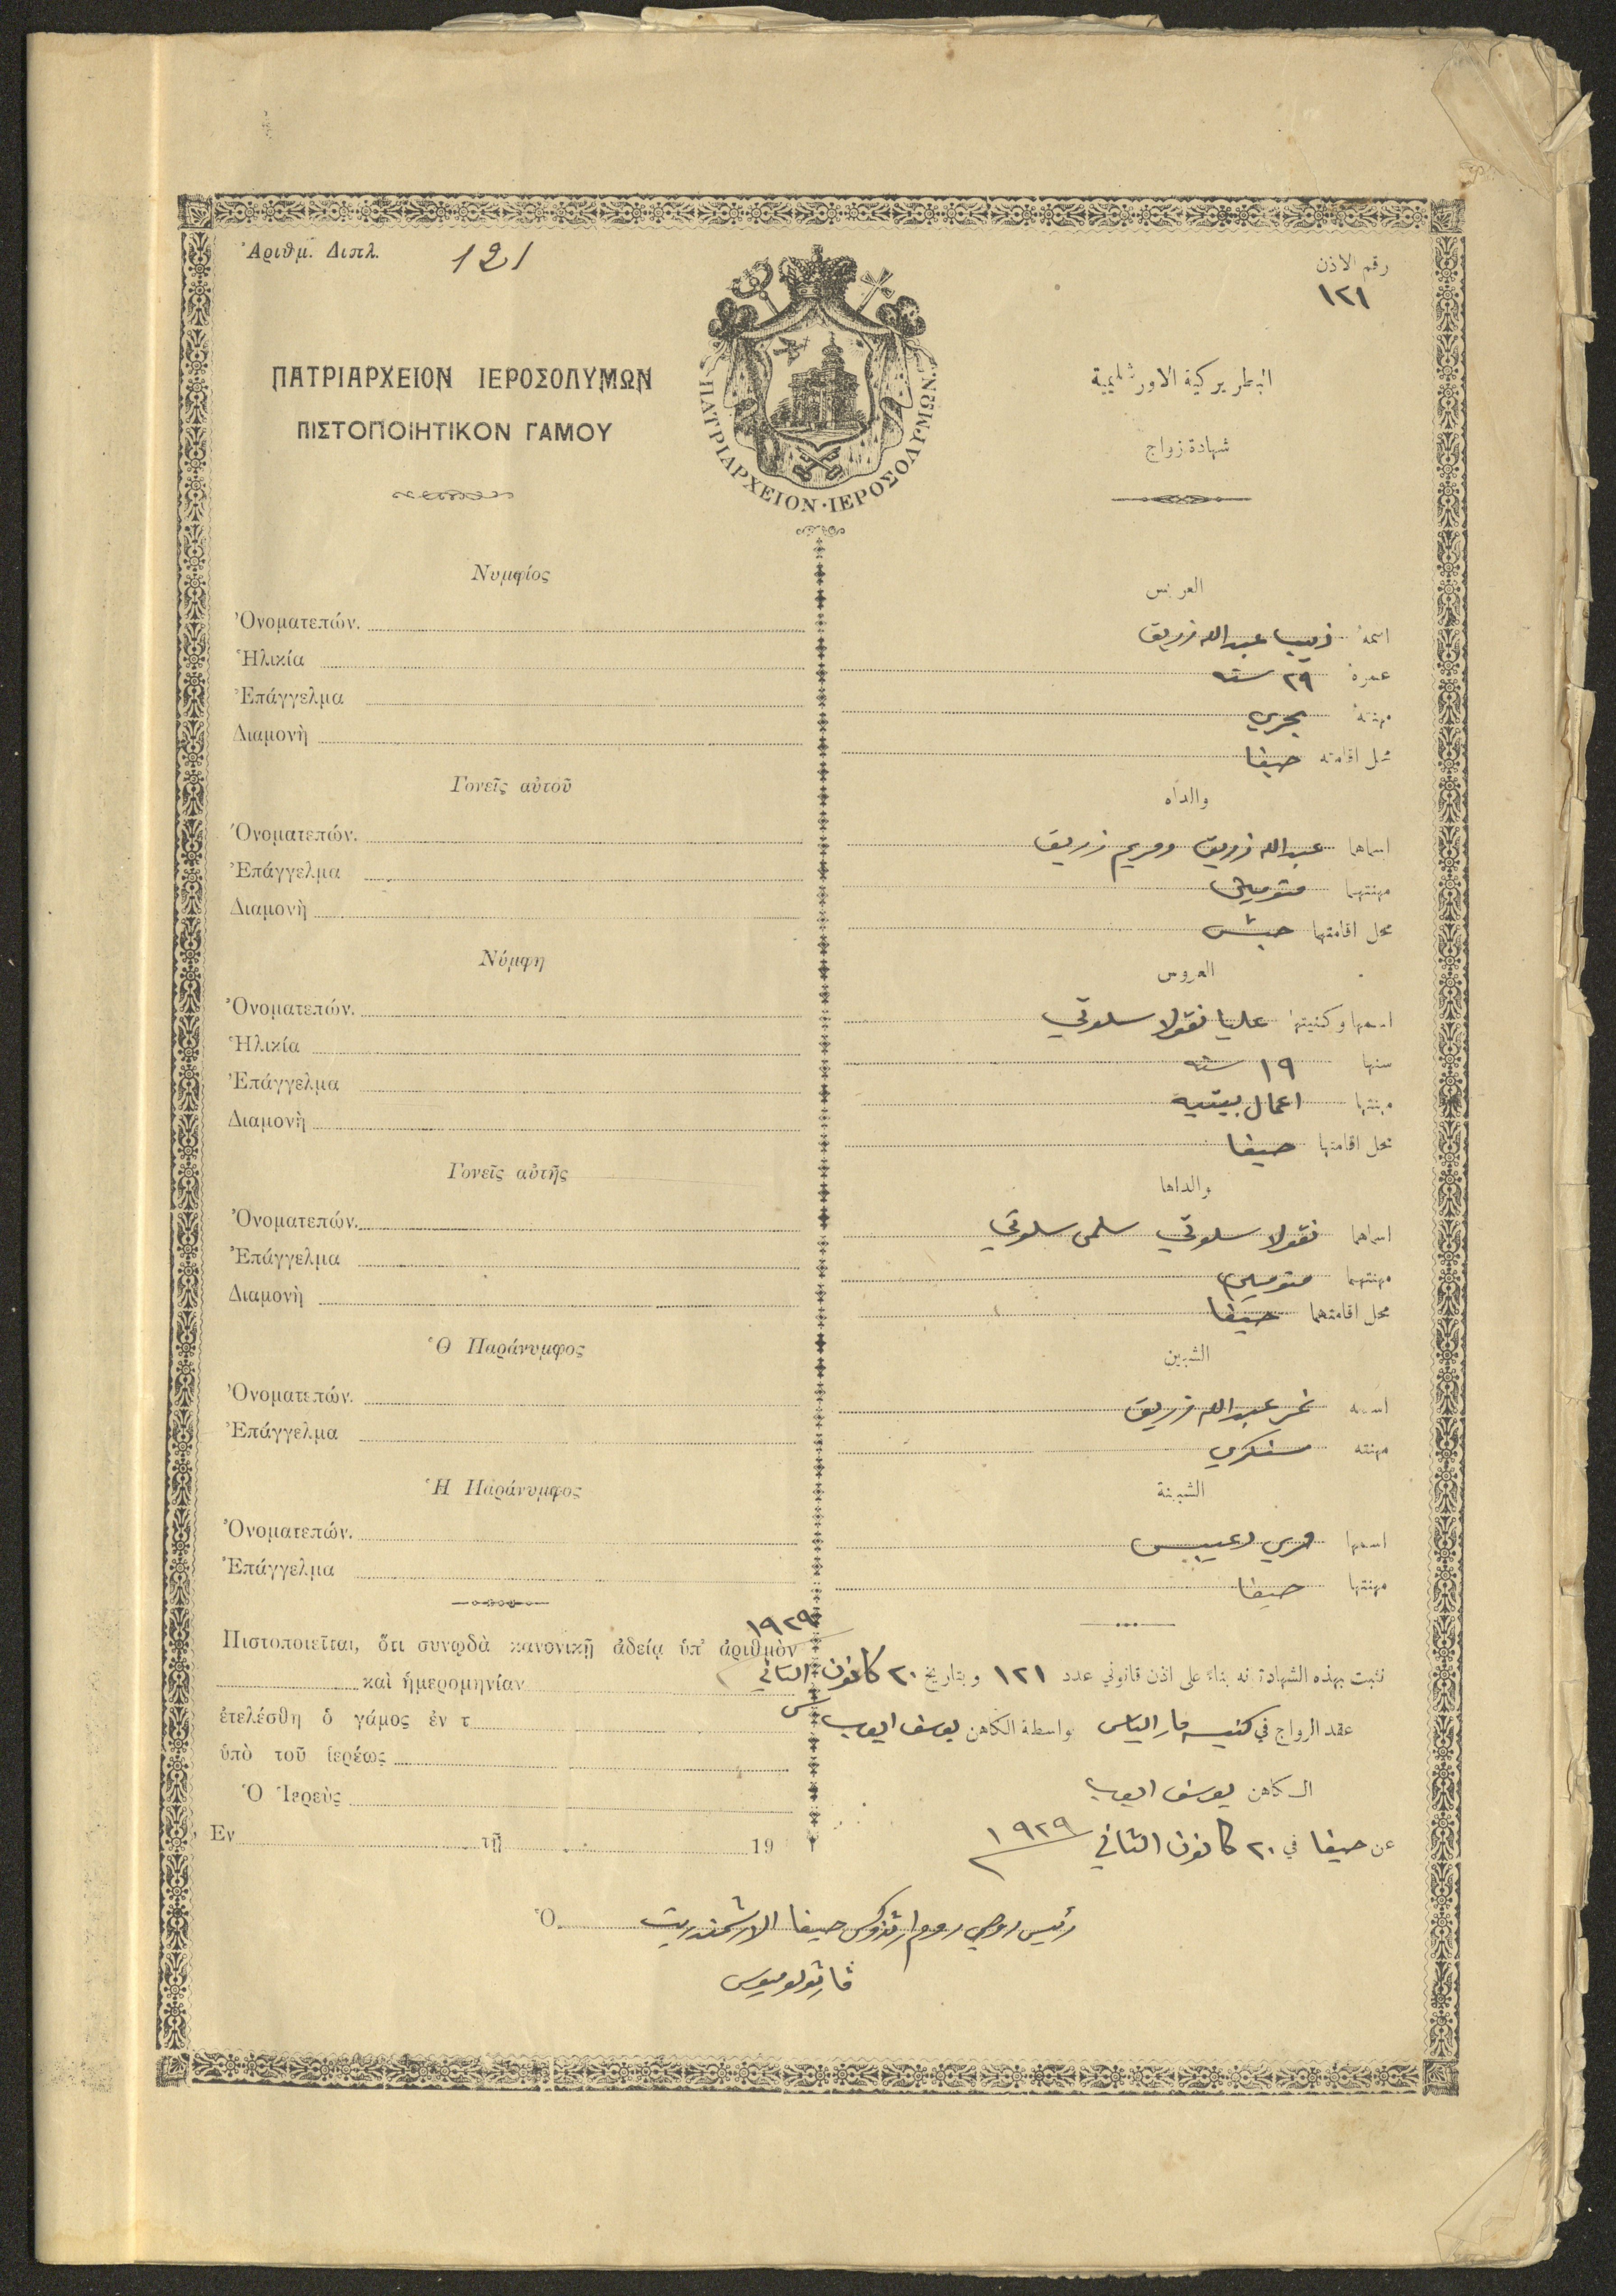 Ἀριθμ. Διπλ. 121
رقم الاذن
١٢١
ΠΑΤΡΙΑΡΧΕΙΟΝ ΙΕΡΟΣΟΛΥΜΩΝ
ΠΙΣΤΟΠΟΙΗΤΙΚΟΝ ΓΑΜΟΥ
ΠΑΤΡΙΑΡΧΕΙΟΝ·ΙΕΡΟΣΟΛΥΜΩΝ.
البطريركية الاورشليمية
شهادة زواج
Νυμφίος
Ὀνοματεπών.
Ἡλικία
Ἐπάγγελμα
Διαμονὴ
Γονεῖς αὐτοῦ
Ὀνοματεπών.
Ἐπάγγελμα
Διαμονὴ
Νύμφη
Ὀνοματεπών.
Ἡλικία
Ἐπάγγελμα
Διαμονὴ
Γονεῖς αὐτῆς
Ὀνοματεπών.
Ἐπάγγελμα
Διαμονὴ
Ὁ Παράνυμφος
Ὀνοματεπών.
Ἐπάγγελμα
Ἡ Παράνυμφος
Ὀνοματεπών.
Ἐπάγγελμα
Πιστοποιεῖται, ὅτι συνῳδὰ κανονικῇ ἀδείᾳ ὑπ' ἀριθμὸν
καὶ ἡμερομηνίαν
ἐτελέσθη ὁ γάμος ἐν τ
ὑπὸ τοῦ ἱερέως
Ὁ Ἱερεὺς
Ἐν τῇ 19
العريس
اسمهُ ذيب عبدالله زريق
عمرهُ ٢٩ سنه
مهنتهُ بحري
محل اقامته حيفا
والداه
اسماهما عبدالله زريق ومريم زريق
مهنتهما
محل اقامتهما
العروس
اسمها وكنيتها عليا نقولا سلوتي
سنها ١٩ سنه
مهنتها اعمال بيتيه
محل اقامتها حيفا
والداها
اسماهما نقولا سلوتي سلمى سلوتي
مهنتهما
محل اقامتهما حيفا
الشبين
اسمه نمر عبدالله زريق
مهنته سنكري
الشبينة
اسمها مري دعيبس
مهنتها حيفا
١٩٢٩
نثبت بهذه الشهادة انه بناءً على اذن قانوني عدد ١٢١ وبتاريخ ٢٠ كانون الثاني
عقد الزواج في كنيسة مار الياس بواسطة الكاهن يوسف ايوب
الكاهن يوسف ايوب
عن حيفا في ٢٠ كانون الثاني ١٩٢٩
Ὁ رئيس روحي روم ارثوذكس حيفا الارشمندريت